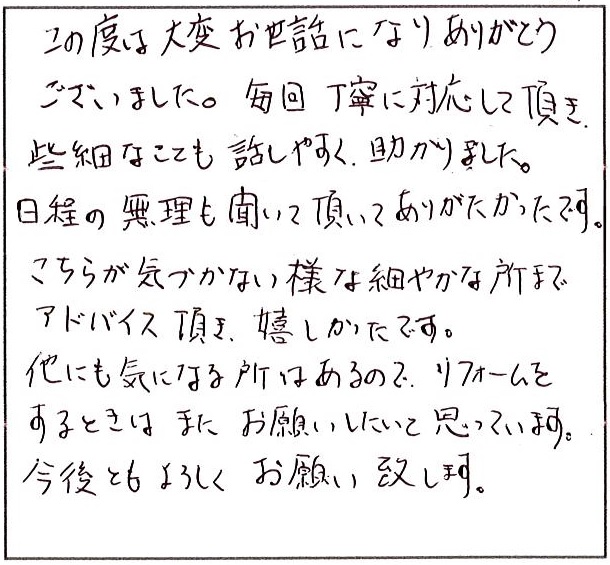 この度は大変お世話になりありがとう
ございました。毎回丁寧に対応して頂き、
些細なことも話しやすく、助かりました。
日程の無理も聞いて頂いてありがたかったです。
こちらが気づかない様な細やかな所まで
アドバイス頂き、嬉しかったです。
他にも気になる所はあるので、リフォームを
するときは またお願いしたいと思っています。
今後ともよろしくお願い致します。